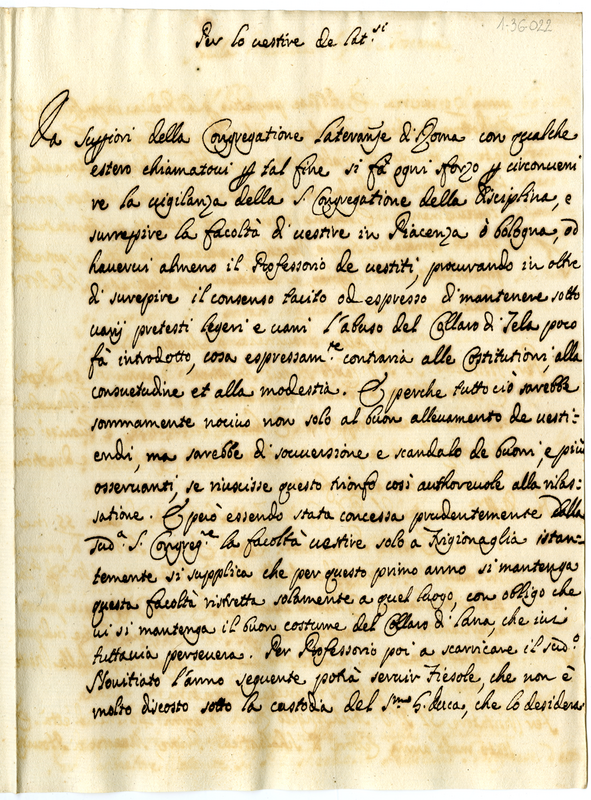 1-36-022
Per lo vestire de lat.si
Da Superiori della Congregatione Lateranse di Roma con qualche
estero chiamatovi p tal fine si fà ogni sforzo p circonveni
re la vigilanza della S. Congregatione della disciplina, e
surrepire la facoltà di vestire in Piacenza ò bologna, od
havervi almeno il Professorio de vestiti, procurando in oltre
di surrepire il consenso tacito od espresso di mantenere sotto
varij pretesti legeri e vani l'abuso del Collaro di Tela poco
fà introdotto, cosa espressam.te contraria alle Costitutioni, alla
consuetudine et alla modestia. E perche tutto ciò sarebbe
sommamente nocivo non solo al buon allevamento de vesti=
endi, ma sarebbe di sovversione e scandalo de buoni, e più
osservanti, se riuscisse questo trionfo così authorevole alla rilas=
satione. E però essendo stata concessa prudentemente dalla
sud.a S. Congreg.e la facoltà vestire solo a Frigionaglia istan=
temente si supplica che per questo primo anno si mantenga
questa facoltà ristretta solamente a quel luogo, con obligo che
vi si mantenga il buon costume del Collaro di lana, che ivi
tuttavia persevera. Per Professorio poi a scarricare il sud.o
Novitiato l'anno seguente potrà servir Fiesole, che non è
molto discosto sotto la custodia del S.mo G. Duca, che lo desidera